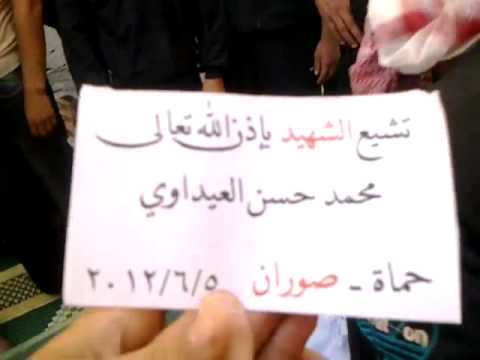 تشيع الشهيد بإذن الله تعالى
محمد حسن العيداوي
حماة - صوران ٢٠١٢/٦/٥